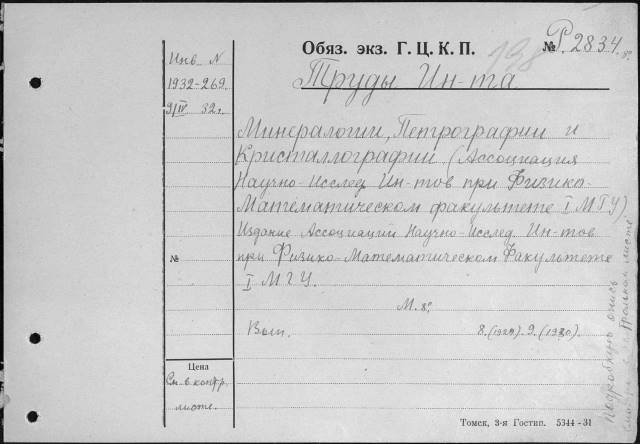 Обяз. экз. Г. Ц. К. П. 198 № Р. 2834 8°.
Инв N
1932-269.
9/IV 32г.
Труды Ин-та
Минералогии, Петрографии и
Кристаллографии (Ассоциация
Научно-Исслед Ин-тов при Физико-
Математическом факультете I МГУ)
Издание Ассоциаций Научно-Исслед. Ин-тов
при Физико-Математическом Факультете
I МГУ.
№
М. 8°.
Вып. 8. (1929). 9. (1930).
Цена
См. в контр.
листе.
Подробную опись
смотри в листе
Томск, 3-я Гостип. 5344-31